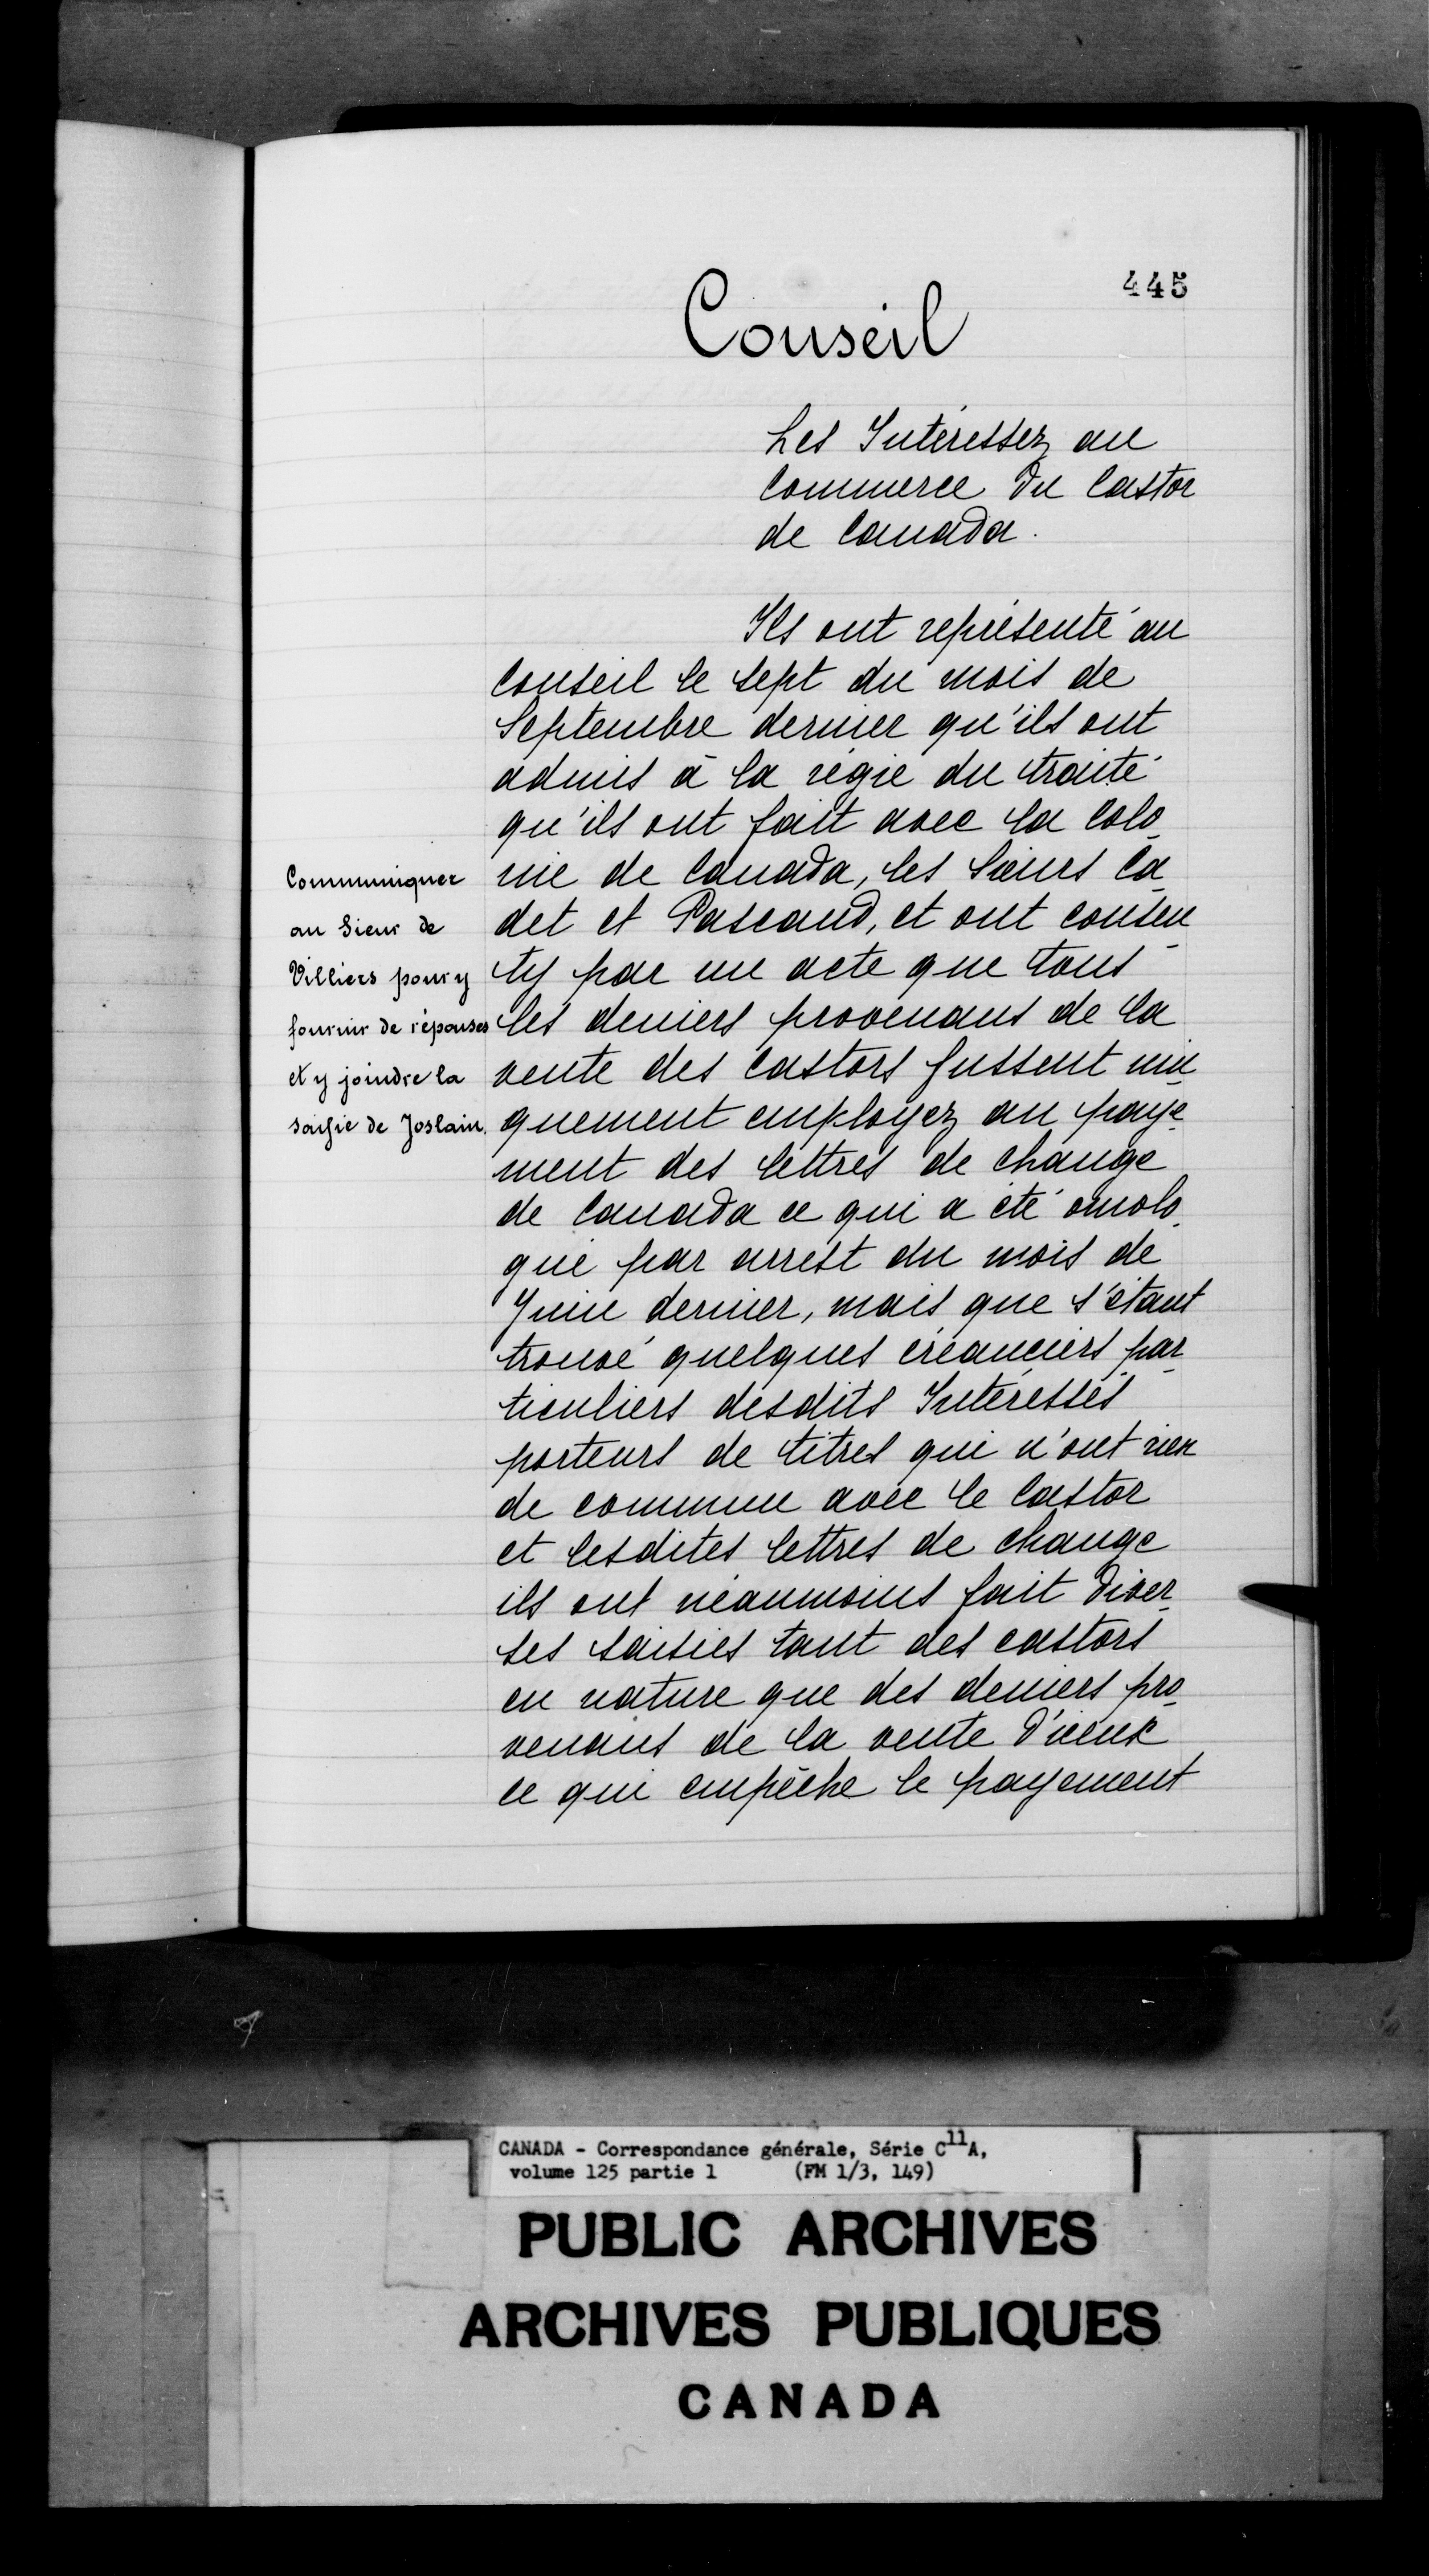 445
Conseil
Les Intéressez au
Commerce du Castor
de Canada.
Ils ont représenté au
Conseil le sept du mois de
Septembre dernier qu'ils ont
admis à la régie du traité
qu'ils ont fait avec la Colo-
nie de Canada, les Sieurs Ca-
det et Pascaud, et ont consen-
ty par un acte que tous
les deniers provenans de la
vente des Castors fussent uni-
quement employez au paye-
ment des lettres de change
de Canada ce qui a été omolo-
gué par arrest du mois de
Juin dernier, mais que s'étant
trouvé quelques créanciers par-
ticuliers desdits Intéressés
porteurs de titres qui n'ont rien
de commun avec le Castor
et lesdites lettres de change
ils ont néanmoins fait diver-
ses saisies tant des castors
en nature que des deniers pro-
venans de la vente d'iceux
ce qui empêche le payement
Communiquer
au Sieur de
Villiers pour y
fournir de réponses
et y joindre la
saisie de Joslain.
CANADA - Correspondance générale, Série C11A,
volume 125 partie 1 (FM 1/3, 149)
PUBLIC ARCHIVES
ARCHIVES PUBLIQUES
CANADA